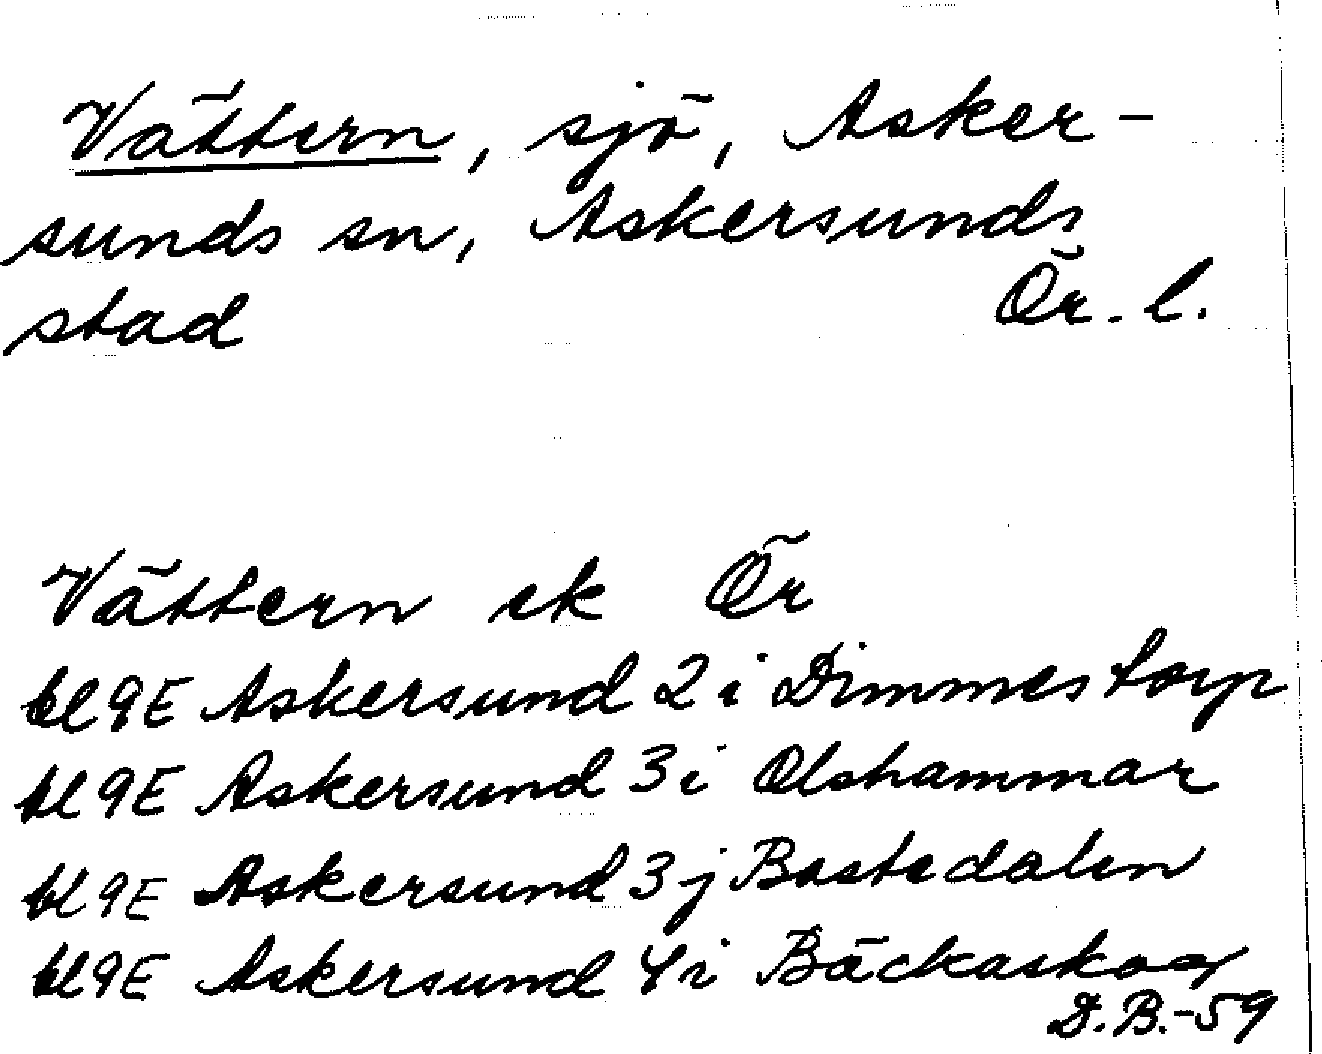 Vättern, sjö, Asker-
sunds sn, Askersunds
stad Ör. l.
Vättern ek Ör
bl 9E Askersund 2 i Dimmestorp
bl 9E Askersund 3 i Olshammar
bl 9E Askersund 3 j Bastedalen
bl 9E Askersund 4 i Bäckaskog
D.B.-59